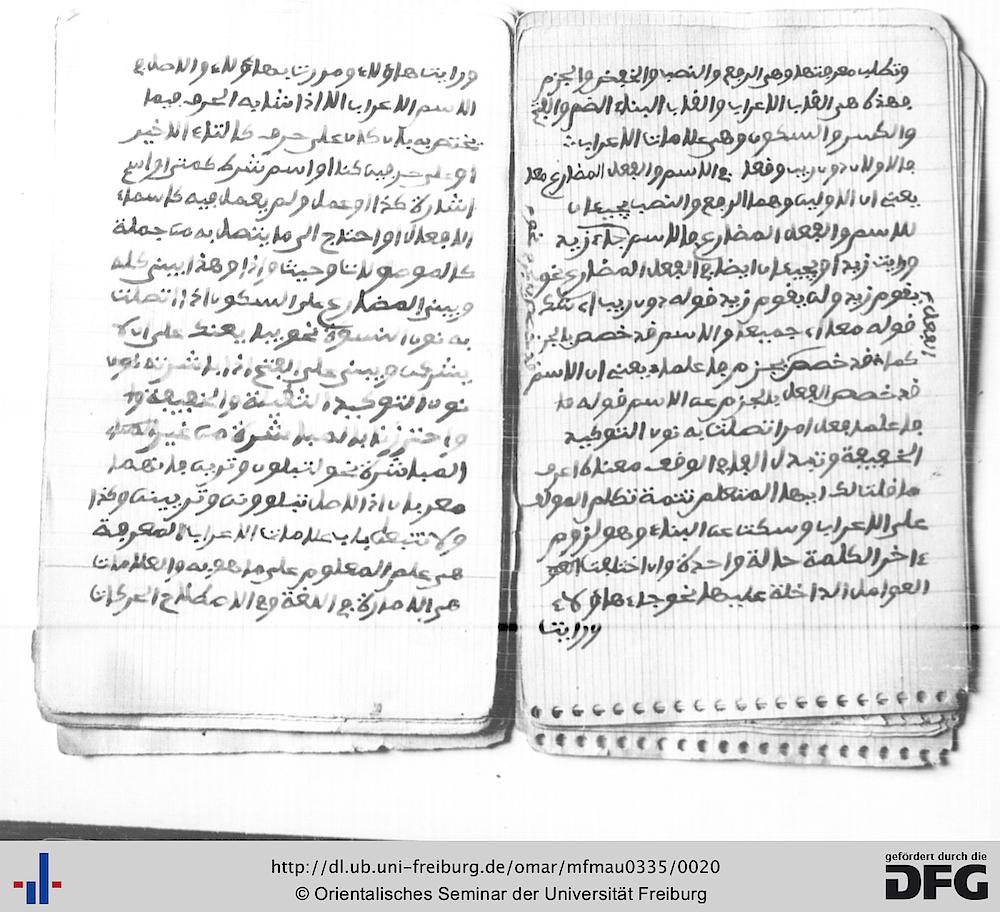 وتطلب معرفتها وهي الرفع والنصب والخفض والجزم
فهذه هي القاب الاعراب والقاب البناء الضم والفتح
والكسر والسكون وهي علامات الاعراب
فالاولان دون ريب وقعا في الاسم والفعل المضارع معا
يعني ان الاولين وهما الرفع والنصب يجيءان
للاسم والفعل المضارع فالاسم جاء زيد
ورايت زيدا ويجيءان ايضا في الفعل المضارع نحو
يقوم زيد ولن يقوم زيد قوله دون ريب اي شك
قوله معا اي جميعا والاسم قد خصص بالجر
كما قد خصص بجزم فاعلما يعني ان الاسم
قد خصص الفعل بالجزم عن الاسم قوله
فاعلما فعل امر اتصلت به نون التوكيد
الخفيفة وتبدل الفا في الوقف معناه اعرف
ما قلت لك ايها المتعلم تتمة تكلم المولف
على الاعراب وسكت عن البناء وهو لزوم
ءاخر الكلمة حالة واحدة وان اختلفت
العوامل الداخلة عليها نحو جاء هاؤلاء
ورايت
الفعل
ورايت هاؤلاء ومررت بهاؤلاء والاصل في
الاسم الاعراب الا اذا شابه الحرف فيما
يختص به بان كان على حرف كالتاء الاخير
او على حرفين كنا او اسم شرط كمتى او اسم
اشارة كذا او عمل ولم يعمل فيه كاسماء
الافعال او احتاج الى ما يتصل به من جملة
كالموصولات وحيث وإذا وهذا يبنى كله
ويبنى المضارع على السكون اذا اتصلت
به نون النسوة نحو يبايعنك على ان لا
يشركن ويبنى على الفتح اذا باشرته نون
نون التوكيد الثقيلة والخفيفة
واحترز بالمباشرة من غير
المباشرة نحو لتبلون وترين فانهما
معربان اذ الاصل تبلوونن وترييننن وكذا
ولا تتبعان باب علامات الاعراب المعرفة
هي علم المعلوم على ما هو به والعلامات
هي الامارة في اللغة وفي الاصطلاح الحركات
http://dl.ub.uni-freiburg.de/omar/mfmau0335/0020
© Orientalisches Seminar der Universität Freiburg
gefördert durch die
DFG